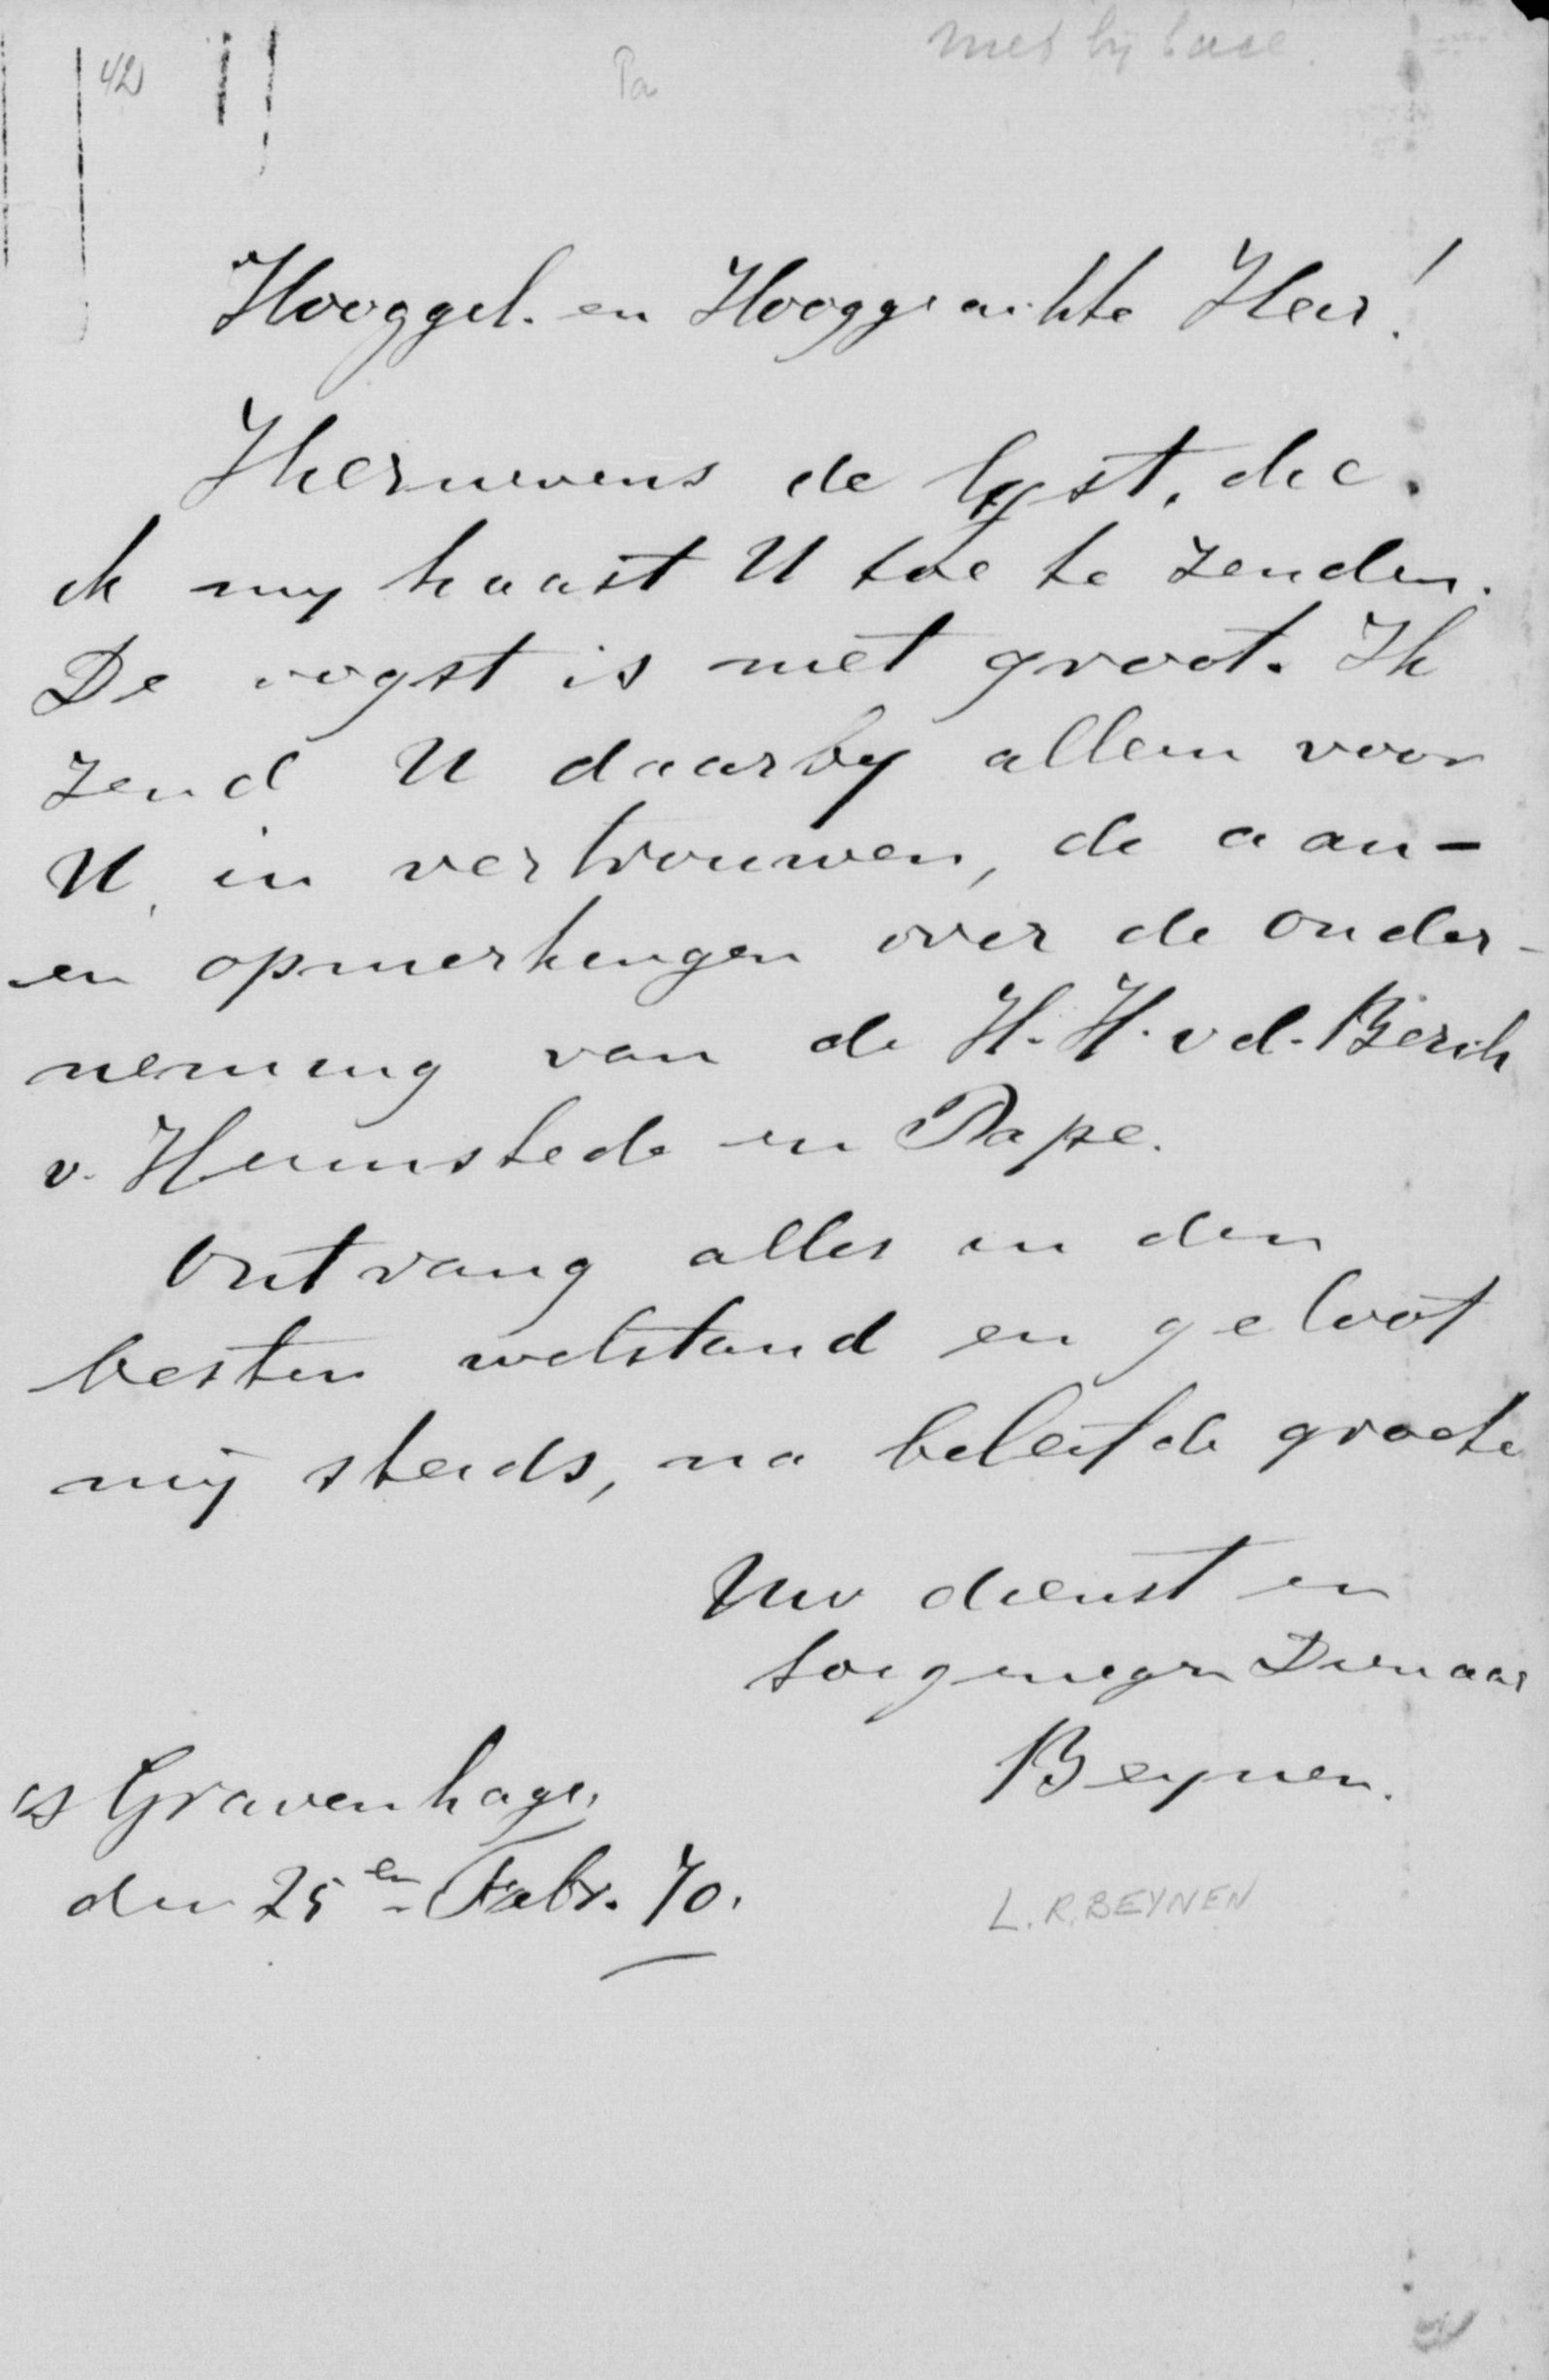 42
Pa
met bijlage.
Hooggel. en Hooggeachte Heer!
Hiernevens de lyst, die
ik my haast U toe te zenden.
De oogst is niet groot. Ik
zend U daarby alleen voor
U, in vertrouwen, de aan-
en opmerkingen over de onder-
neming van de H. H. v d. Berch
v. Heemstede en Pape.
Ontvang alles in den
besten welstand en geloof
mij steeds, na beleefde groete
Uw dienst en
toegenegen Dienaar
Beynen.
's Gravenhage,
den 25en Febr. 70.
L. R. BEYNEN